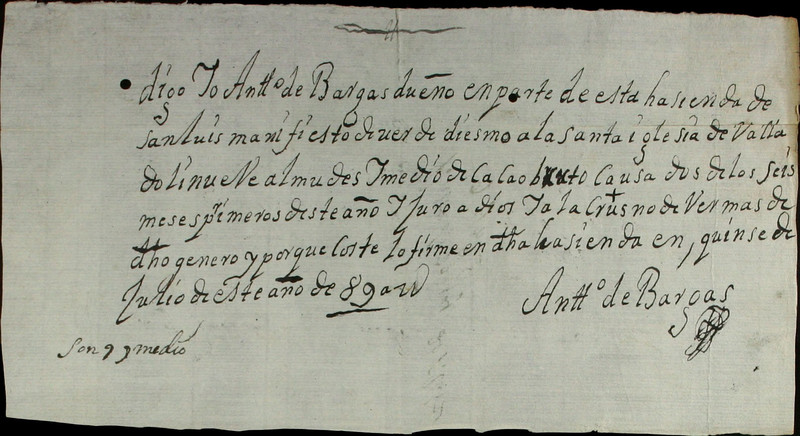 digo Yo Antt.o de Bargas dueño en parte de esta hasienda de
san luis manifiesto dever de diesmo a la santa iglesia de Valla
doli nueVe almudes Y medio de CaCao bruto Causados de los seis
meses p.rimeros deste año Y Juro a dios Y a la Crus no deVer mas de
dho genero y porque Coste lo firme en dha hasienda en, quinse de
Julio de este año de 89 a
Antt.o de Bargas
son 9 y medio